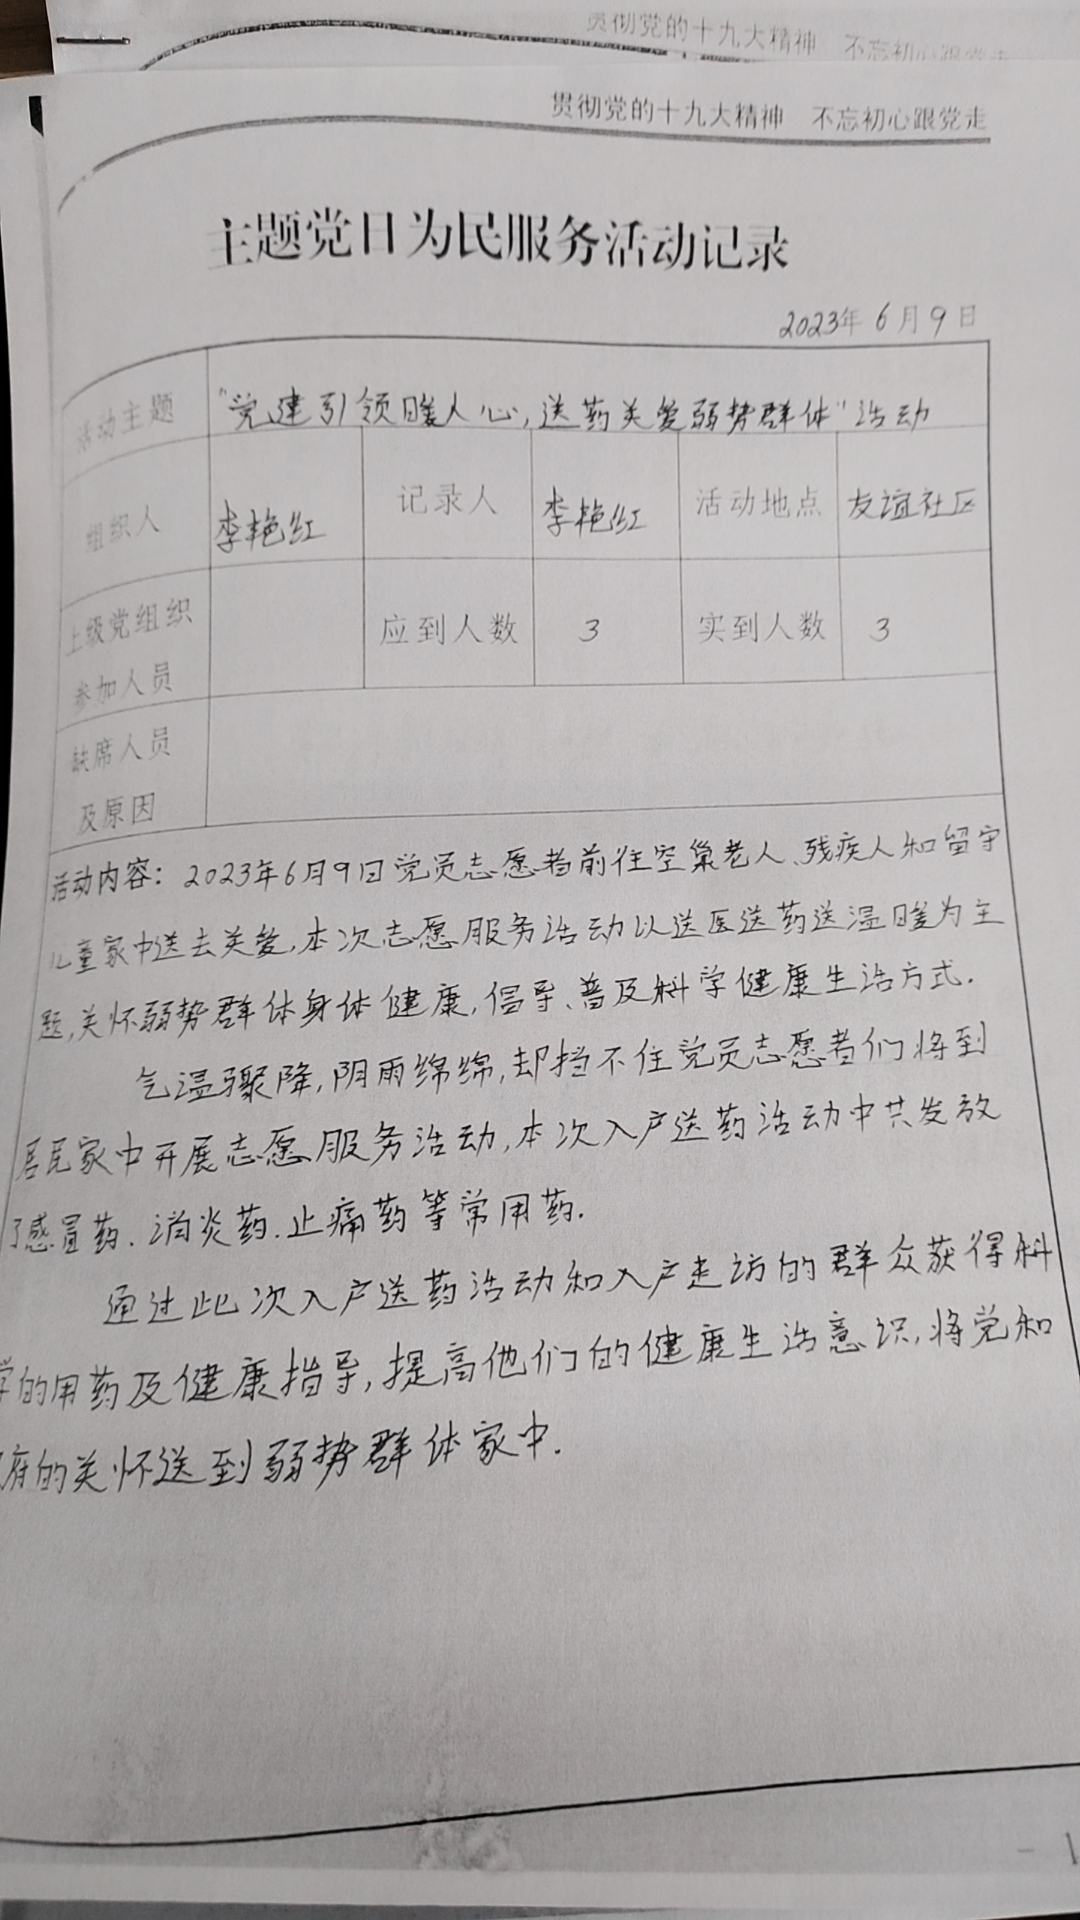 贯彻党的十九大精神 不忘初心跟党走
贯彻党的十九大精神 不忘初心跟党走
主题党日为民服务活动记录
2023年6月9日
活动主题 "党建引领暖人心,送药关爱弱势群体"活动
组织人 李艳红 记录人 李艳红 活动地点 友谊社区
上级党组织
参加人员 应到人数 3 实到人数 3
缺席人员
及原因
活动内容：2023年6月9日党员志愿者前往空巢老人、残疾人和留守
儿童家中送去关爱,本次志愿服务活动以送医送药送温暖为主
题,关怀弱势群体身体健康,倡导、普及科学健康生活方式.
气温骤降,阴雨绵绵,却挡不住党员志愿者们将到
居民家中开展志愿服务活动,本次入户送药活动中共发放
了感冒药、消炎药、止痛药等常用药.
通过此次入户送药活动和入户走访的群众获得科
学的用药及健康指导,提高他们的健康生活意识,将党和
府的关怀送到弱势群体家中.
- 1